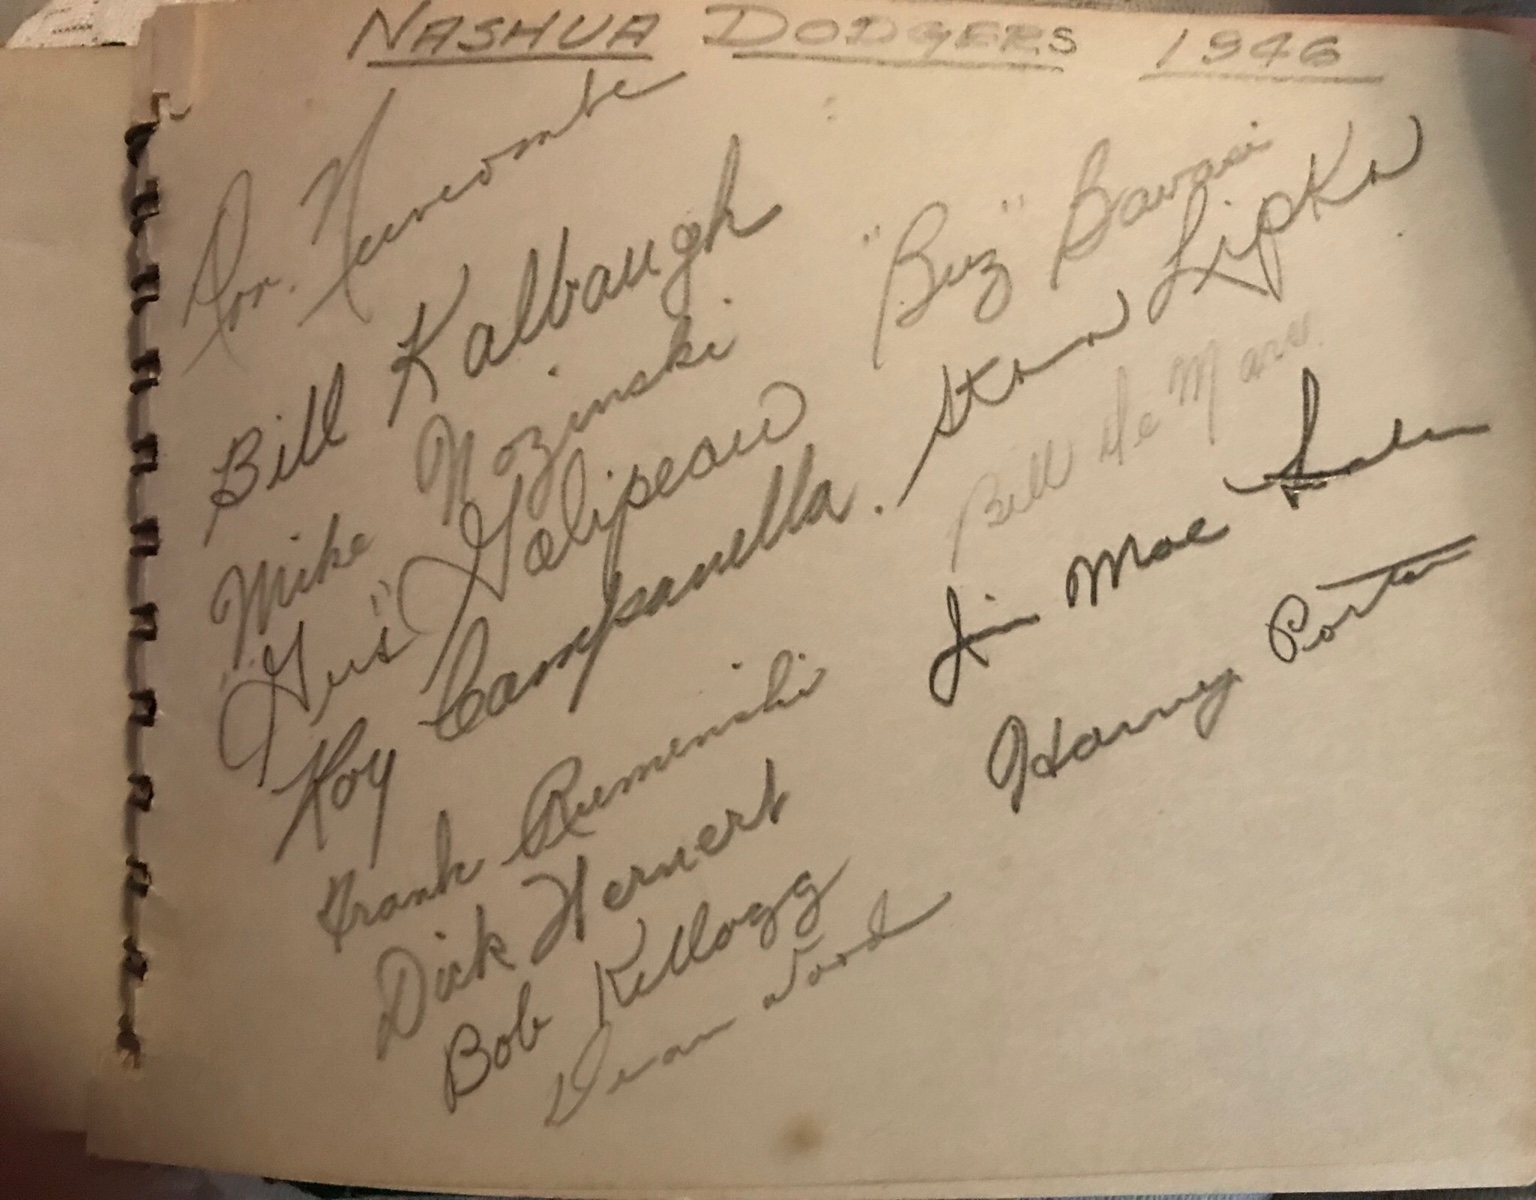 NASHUA DODGERS 1946
Don. Newcombe
Bill Kalbaugh
Mike Nozinski
"Gus" Galipeau
Roy Campanella.
Frank Rumenski
Dick Hernert
Bob Kellogg
Dean Wood
"Buz" Bavasi
Stan Lipka
Bill De Mars
Jim Mac
Harvey Porter